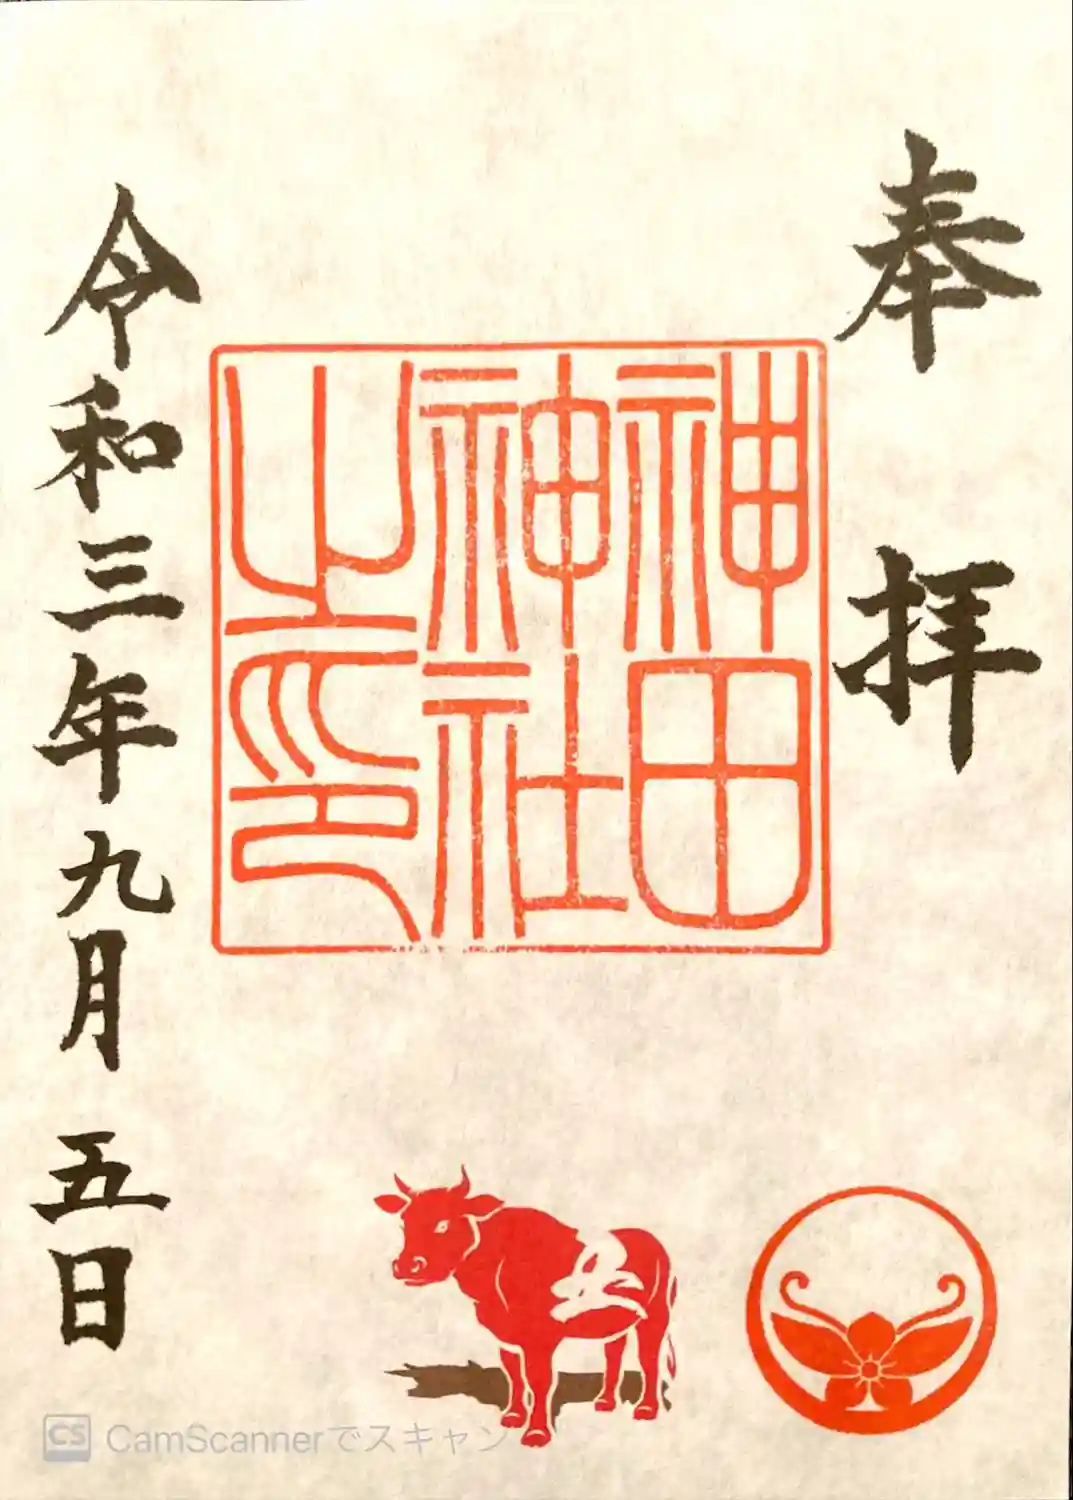 奉拝
神田
神社
之印
令和三年九月五日
CS CamScannerでスキャン